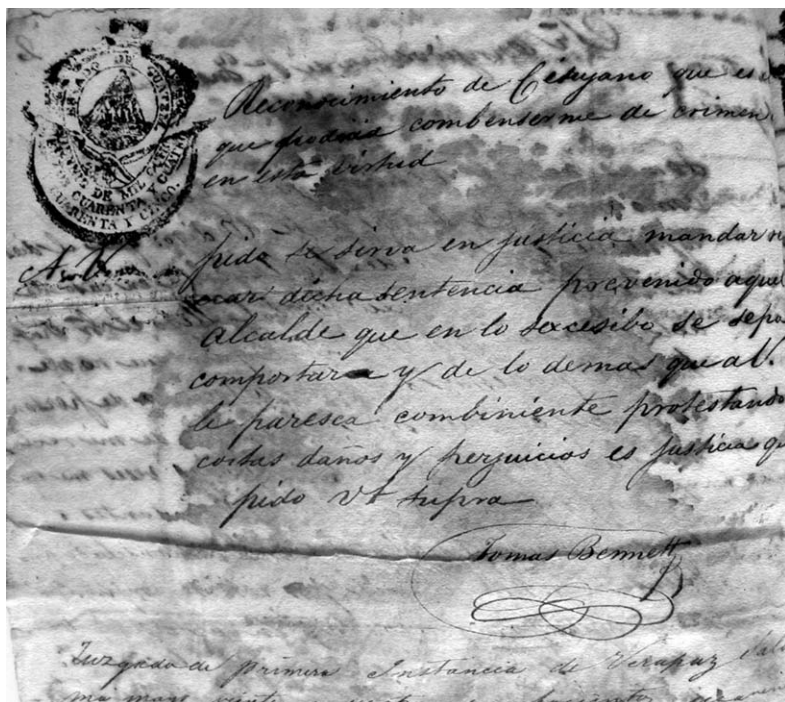 ESTADO DE GUATE
DE MIL
CUARENTA
CUARENTA Y CINCO.
Reconocimiento de Cirujano que es
que podrid combenserme de crimen
en esta virtud
pido se sirva en justicia mandar
ocar dicha sentencia prevenido aquel
Alcalde que en lo sucesibo se sepa
comportarse y de lo demas que al V.
le paresca combiniente protestando
costas daños y perjuicios es justicia q
pido Vt supra
Tomas Bennett
Juzgado de primera Instancia de Verapaz Sala
ma mayo veinte